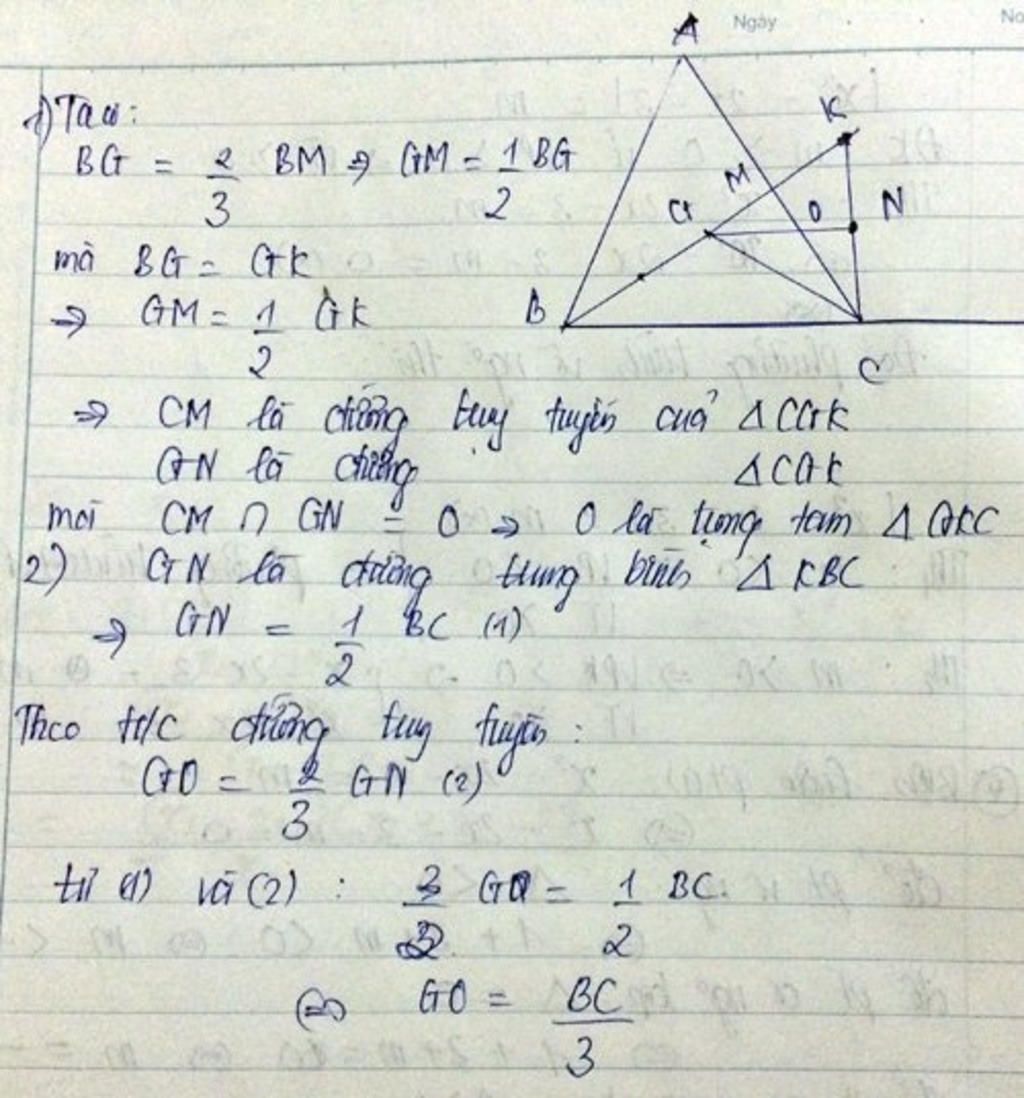 Ngày
No
A
K
M
G
O
N
B
C
1) Ta có:
BG = 2/3 BM ⇒ GM = 1/2 BG
mà BG = GK
⇒ GM = 1/2 GK
⇒ CM là đường trung tuyến của Δ CGK
GN là đường Δ CGK
mà CM ∩ GN = O ⇒ O là trọng tâm Δ GKC
2) GN là đường trung bình Δ KBC
⇒ GN = 1/2 BC (1)
Theo t/c đường trung tuyến :
GO = 2/3 GN (2)
từ (1) và (2) : 3/2 GO = 1/2 BC.
⇔ GO = BC/3